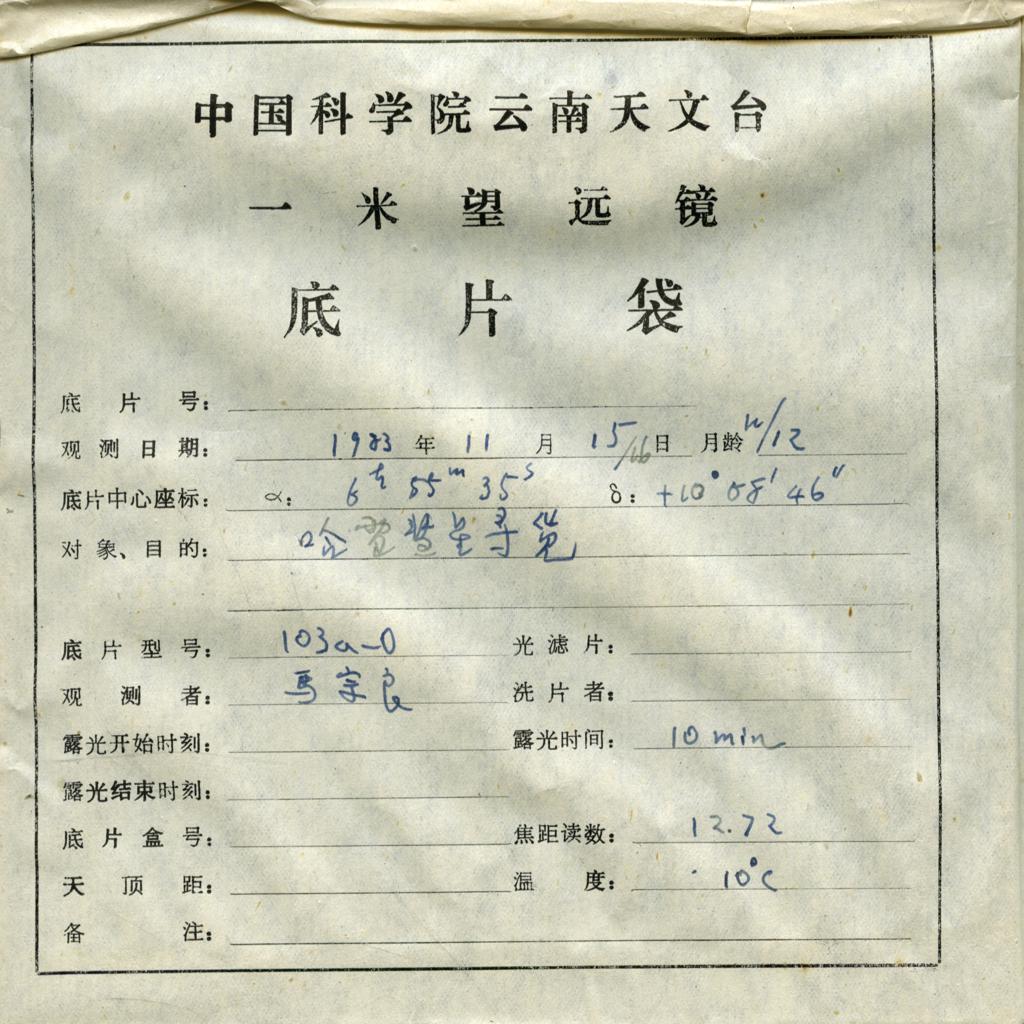 中国科学院云南天文台
一米望远镜
底片袋
底片号：
观测日期： 1983 年 11 月 15/16 日 月龄 /12
底片中心座标： α： 6h 55m 35s δ： +10° 58′ 46″
对象、目的： 哈雷彗星寻觅
底片型号： 103a-O 光滤片：
观测者： 马宗良 洗片者：
露光开始时刻： 露光时间： 10 min
露光结束时刻：
底片盒号： 焦距读数： 12.72
天顶距： 温度： 10°C
备注：